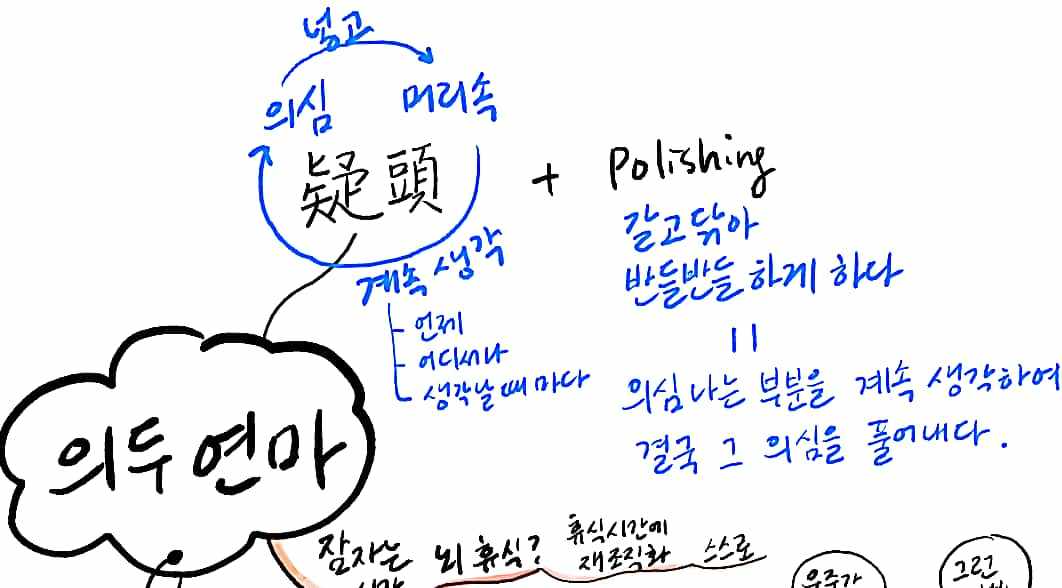 넣고
의심 머리속
疑頭 + Polishing
계속 생각
- 언제
- 어디서나
- 생각날 때 마다
갈고닦아
반들반들하게 하다
=
의심나는 부분을 계속 생각하여
결국 그 의심을 풀어내다.
의두 연마
잠자는 뇌 휴식? 휴식시간에
재조직화 스스로
시간
우주가
그런